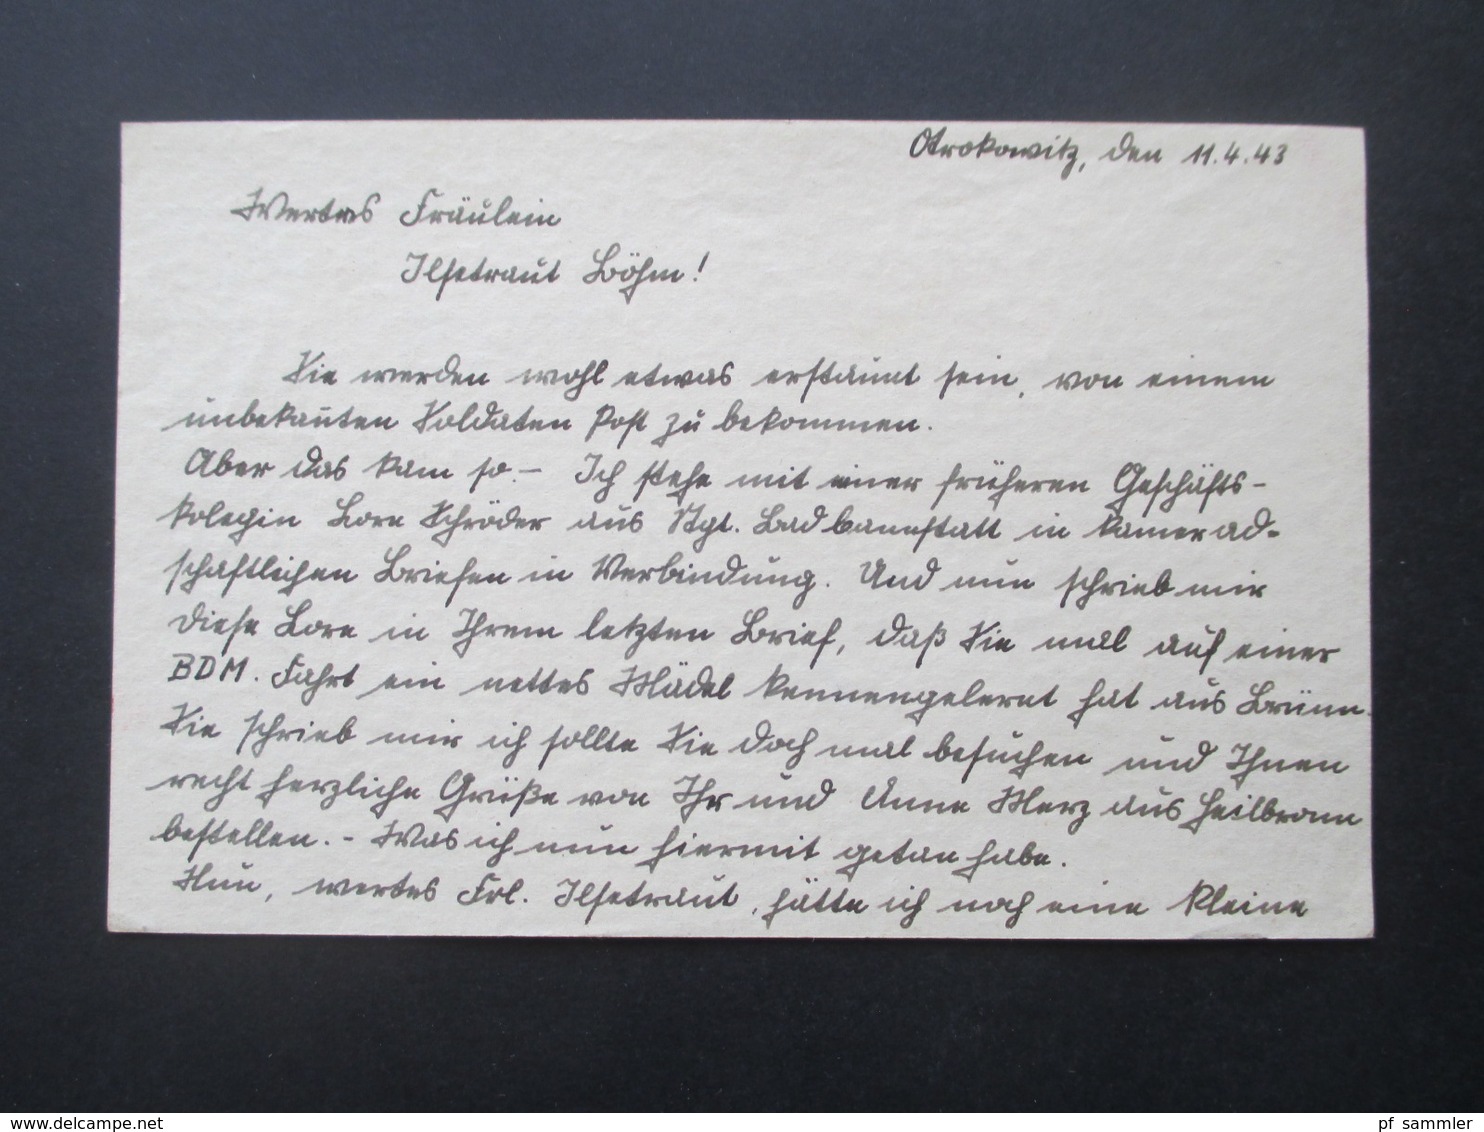 Otrokowitz, den 11.4.43
Wertes Fräulein
Ilsetraut Böhm!
Sie werden wohl etwas erstaunt sein, von einem
unbekannten Soldaten Post zu bekommen.
Aber das kam so.- Ich stehe mit einer früheren Geschäfts-
kolegin Lore Schröder aus Stgt. Bad Cannstatt in kamerad-
schaftlichen Briefen in Verbindung. Und nun schrieb mir
diese Lore in Ihrem letzten Brief, daß Sie mal auf einer
BDM. Fahrt ein nettes Mädel kennengelernt hat aus Brünn.
Sie schrieb mir ich sollte Sie doch mal besuchen und Ihnen
recht herzliche Grüße von Ihr und Anne Merz aus Heilbronn
bestellen. - Was ich nun hiermit getan habe.
Nun, wertes Frl. Ilsetraut, hätte ich noch eine kleine
www.delcampe.net
pf_sammler